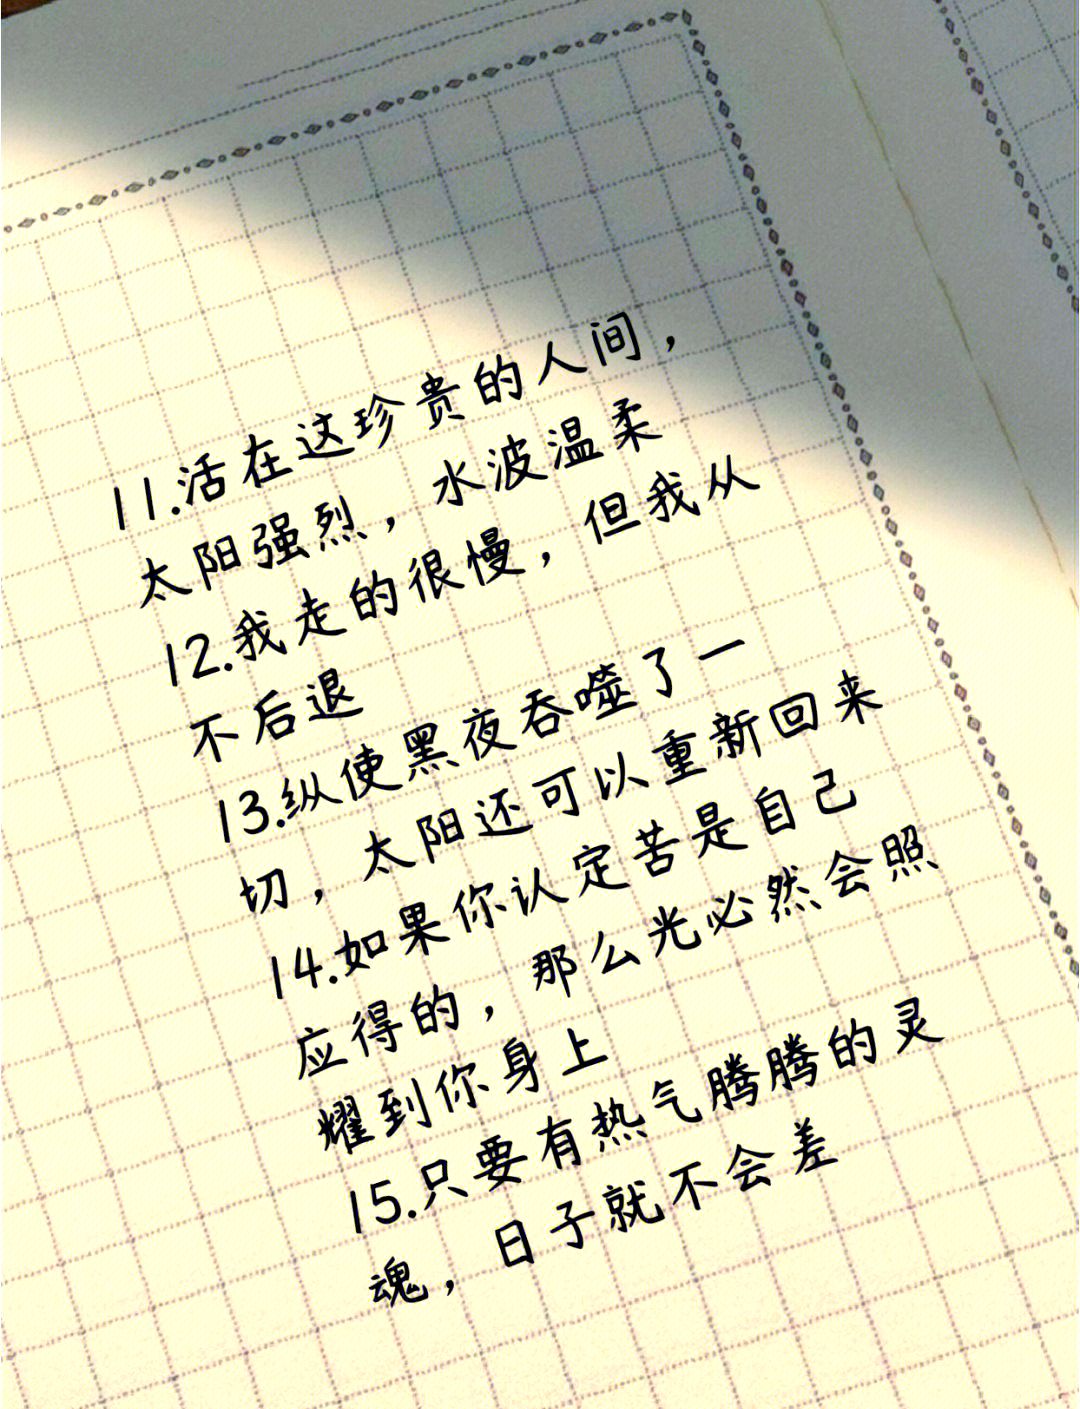 11.活在这珍贵的人间，
太阳强烈，水波温柔
12.我走的很慢，但我从
不后退
13.纵使黑夜吞噬了一
切，太阳还可以重新回来
14.如果你认定苦是自己
应得的，那么光必然会照
耀到你身上
15.只要有热气腾腾的灵
魂，日子就不会差